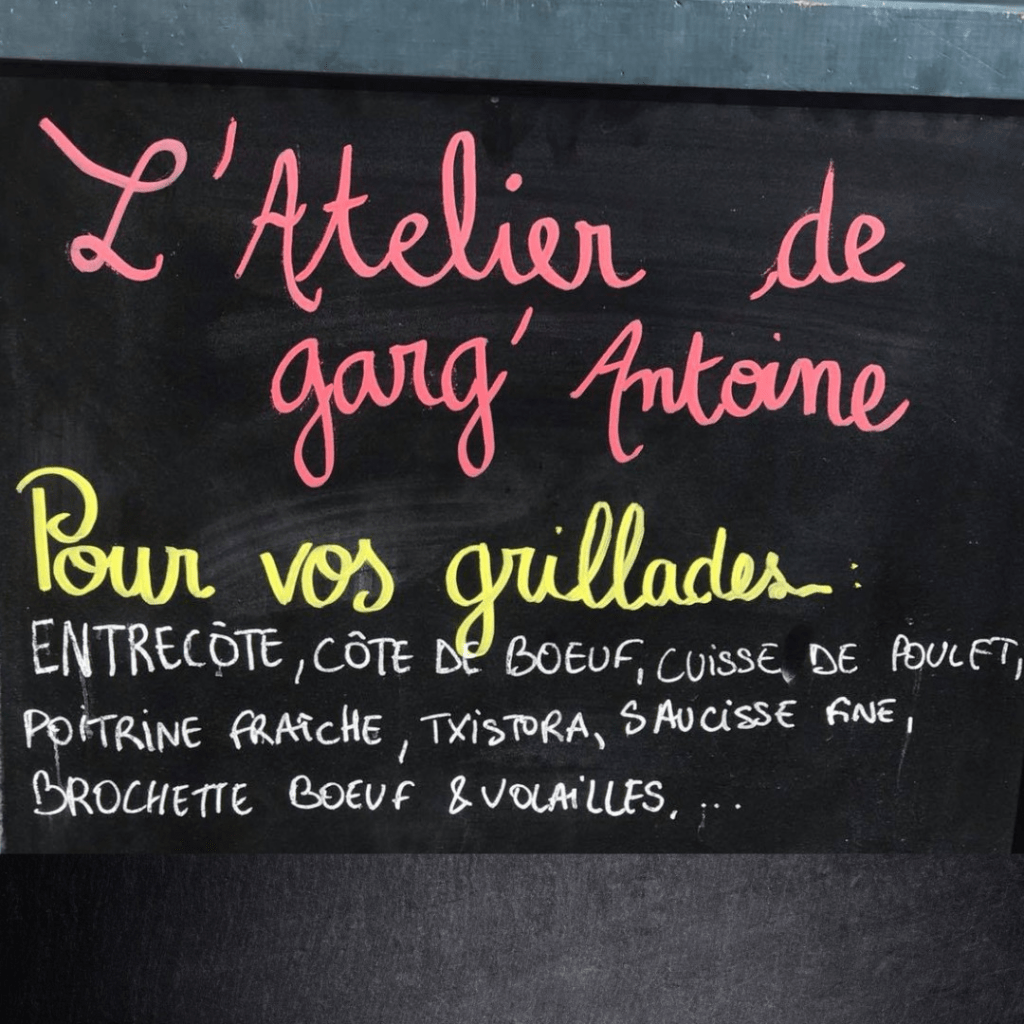 L'Atelier de
garg' Antoine
Pour vos grillades :
ENTRECÔTE, CÔTE DE BOEUF, CUISSE DE POULET,
POITRINE FRAÎCHE, TXISTORA, SAUCISSE FINE,
BROCHETTE BOEUF & VOLAILLES, ...